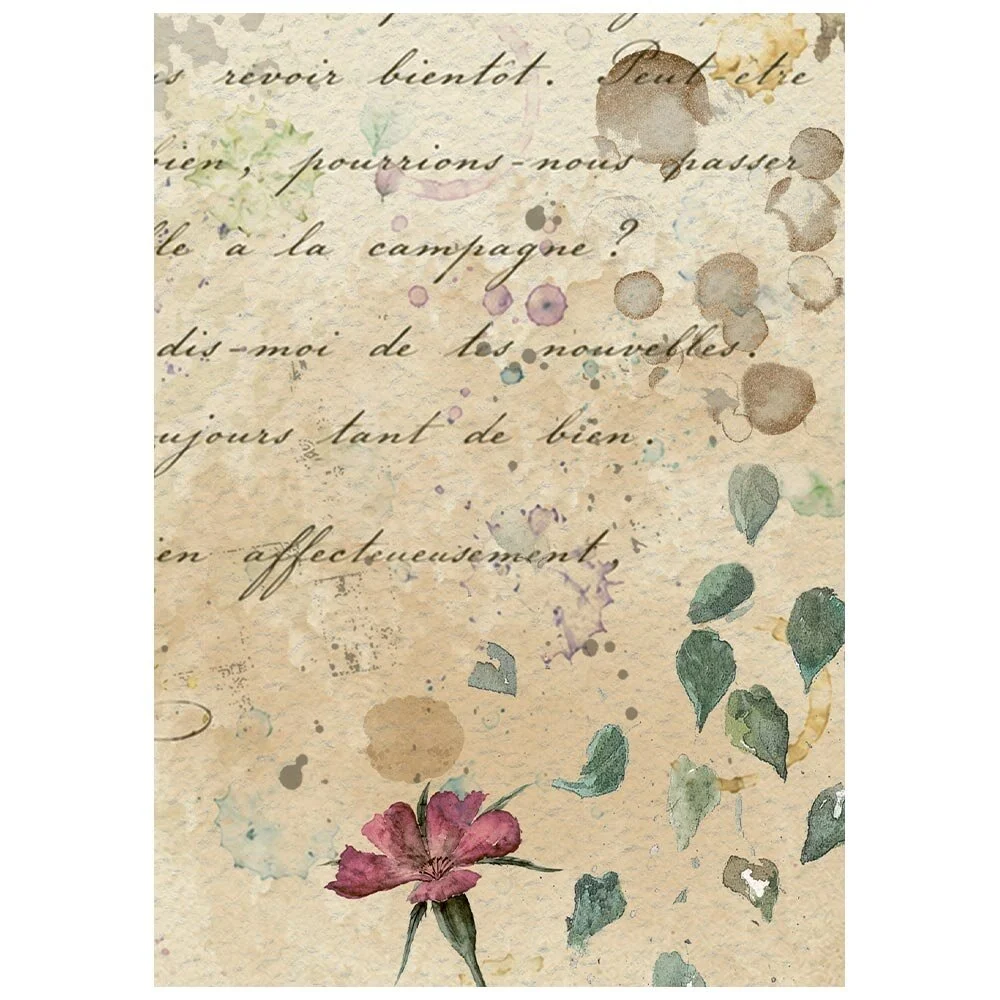 s revoir bientôt. Peut-etre
bien, pourrions-nous passer
le à la campagne?
dis-moi de tes nouvelles.
ujours tant de bien.
en affecteueusement,